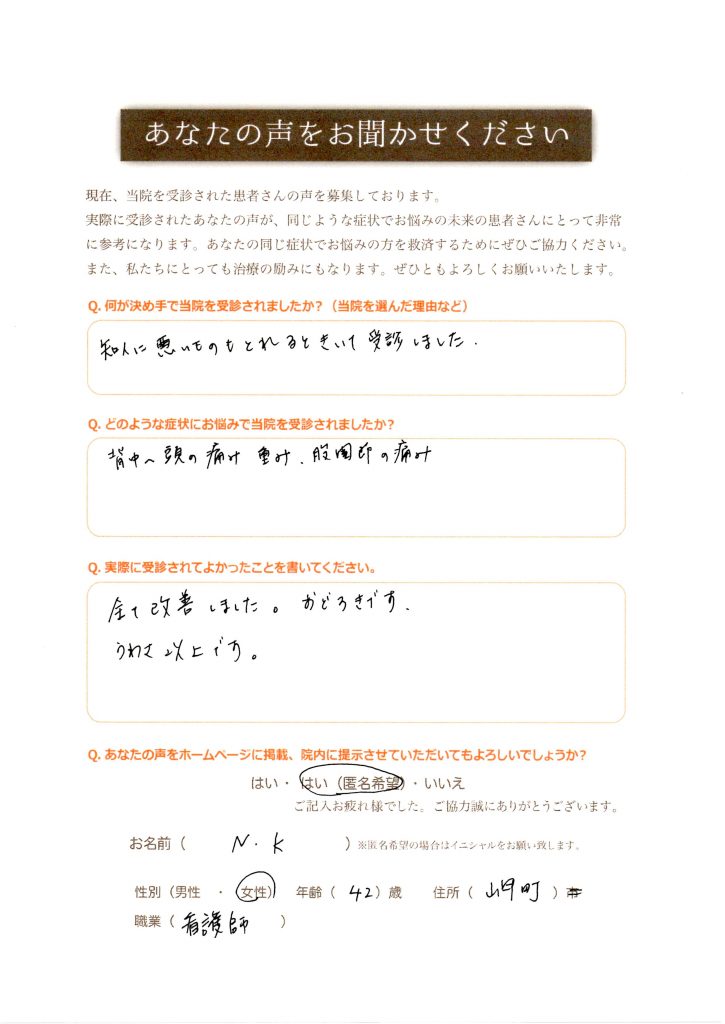 あなたの声をお聞かせください
現在、当院を受診された患者さんの声を募集しております。
実際に受診されたあなたの声が、同じような症状でお悩みの未来の患者さんにとって非常
に参考になります。あなたの同じ症状でお悩みの方を救済するためにぜひご協力ください。
また、私たちにとっても治療の励みにもなります。ぜひともよろしくお願いいたします。
Q. 何が決め手で当院を受診されましたか？（当院を選んだ理由など）
知人に悪いものもとれるときいて受診しました.
Q. どのような症状にお悩みで当院を受診されましたか？
背中へ頭の痛み 重み、股関節の痛み
Q. 実際に受診されてよかったことを書いてください。
全て改善しました。おどろきです.
うわさ以上です。
Q. あなたの声をホームページに掲載、院内に提示させていただいてもよろしいでしょうか？
はい・はい（匿名希望）・いいえ
ご記入お疲れ様でした。ご協力誠にありがとうございます。
お名前（ N・K ）※匿名希望の場合はイニシャルをお願い致します。
性別（男性 ・ 女性） 年齢（ 42 ）歳 住所（ 町 ）
職業（ 看護師 ）